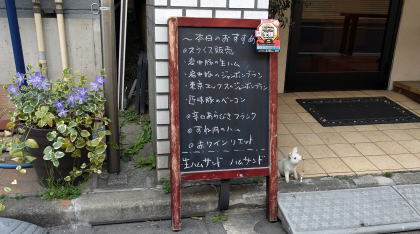 ～本日のおすすめ
◎スライス販売
・岩中豚の生ハム
・岩中豚のジャンボンブラン
・東京エックスのジャンボンブラン
・旨味豚のベーコン
◎辛口あらびきフランク
◎すね肉のハム
◎おつインリエット
生ハムサンド ハムサンド